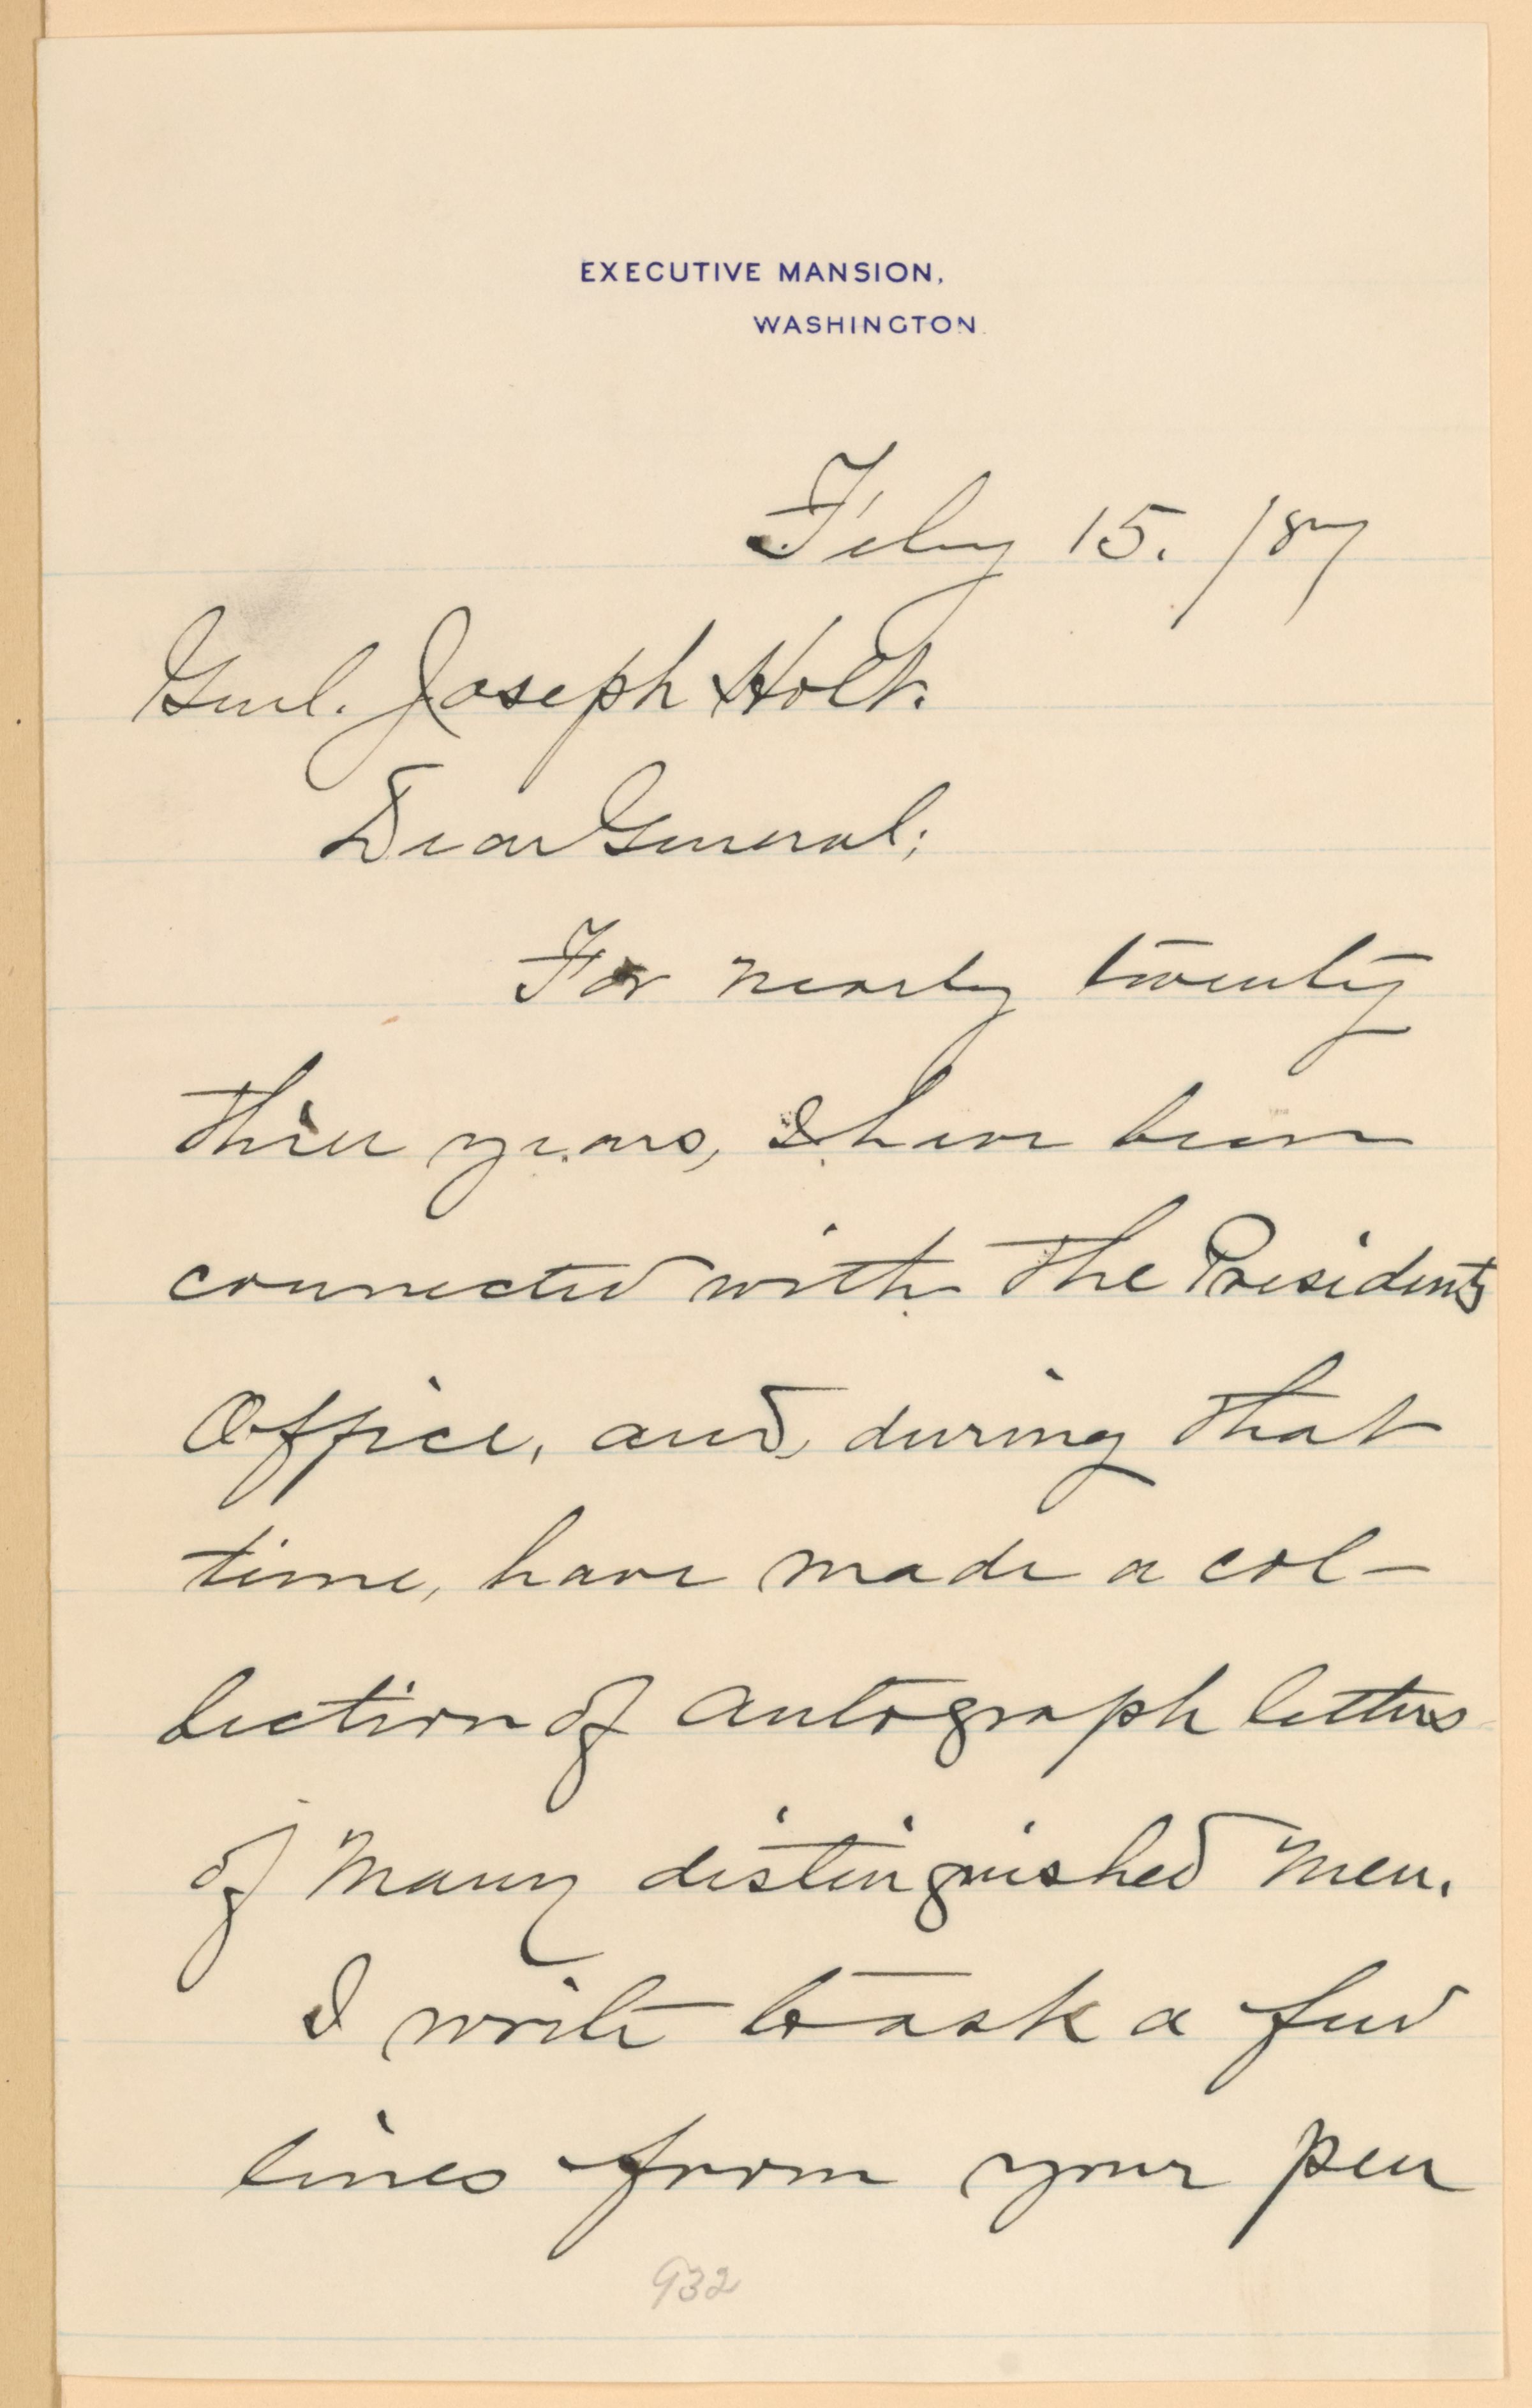 EXECUTIVE MANSION,
WASHINGTON.
Feby 15. /87
Genl. Joseph Holt.
Dear General;
For nearly twenty
three years, I have been
connected with the Presidents
Office, and, during that
time, have made a col-
lection of autograph letters
of many distinguished men.
I write to ask a few
lines from your pen
932